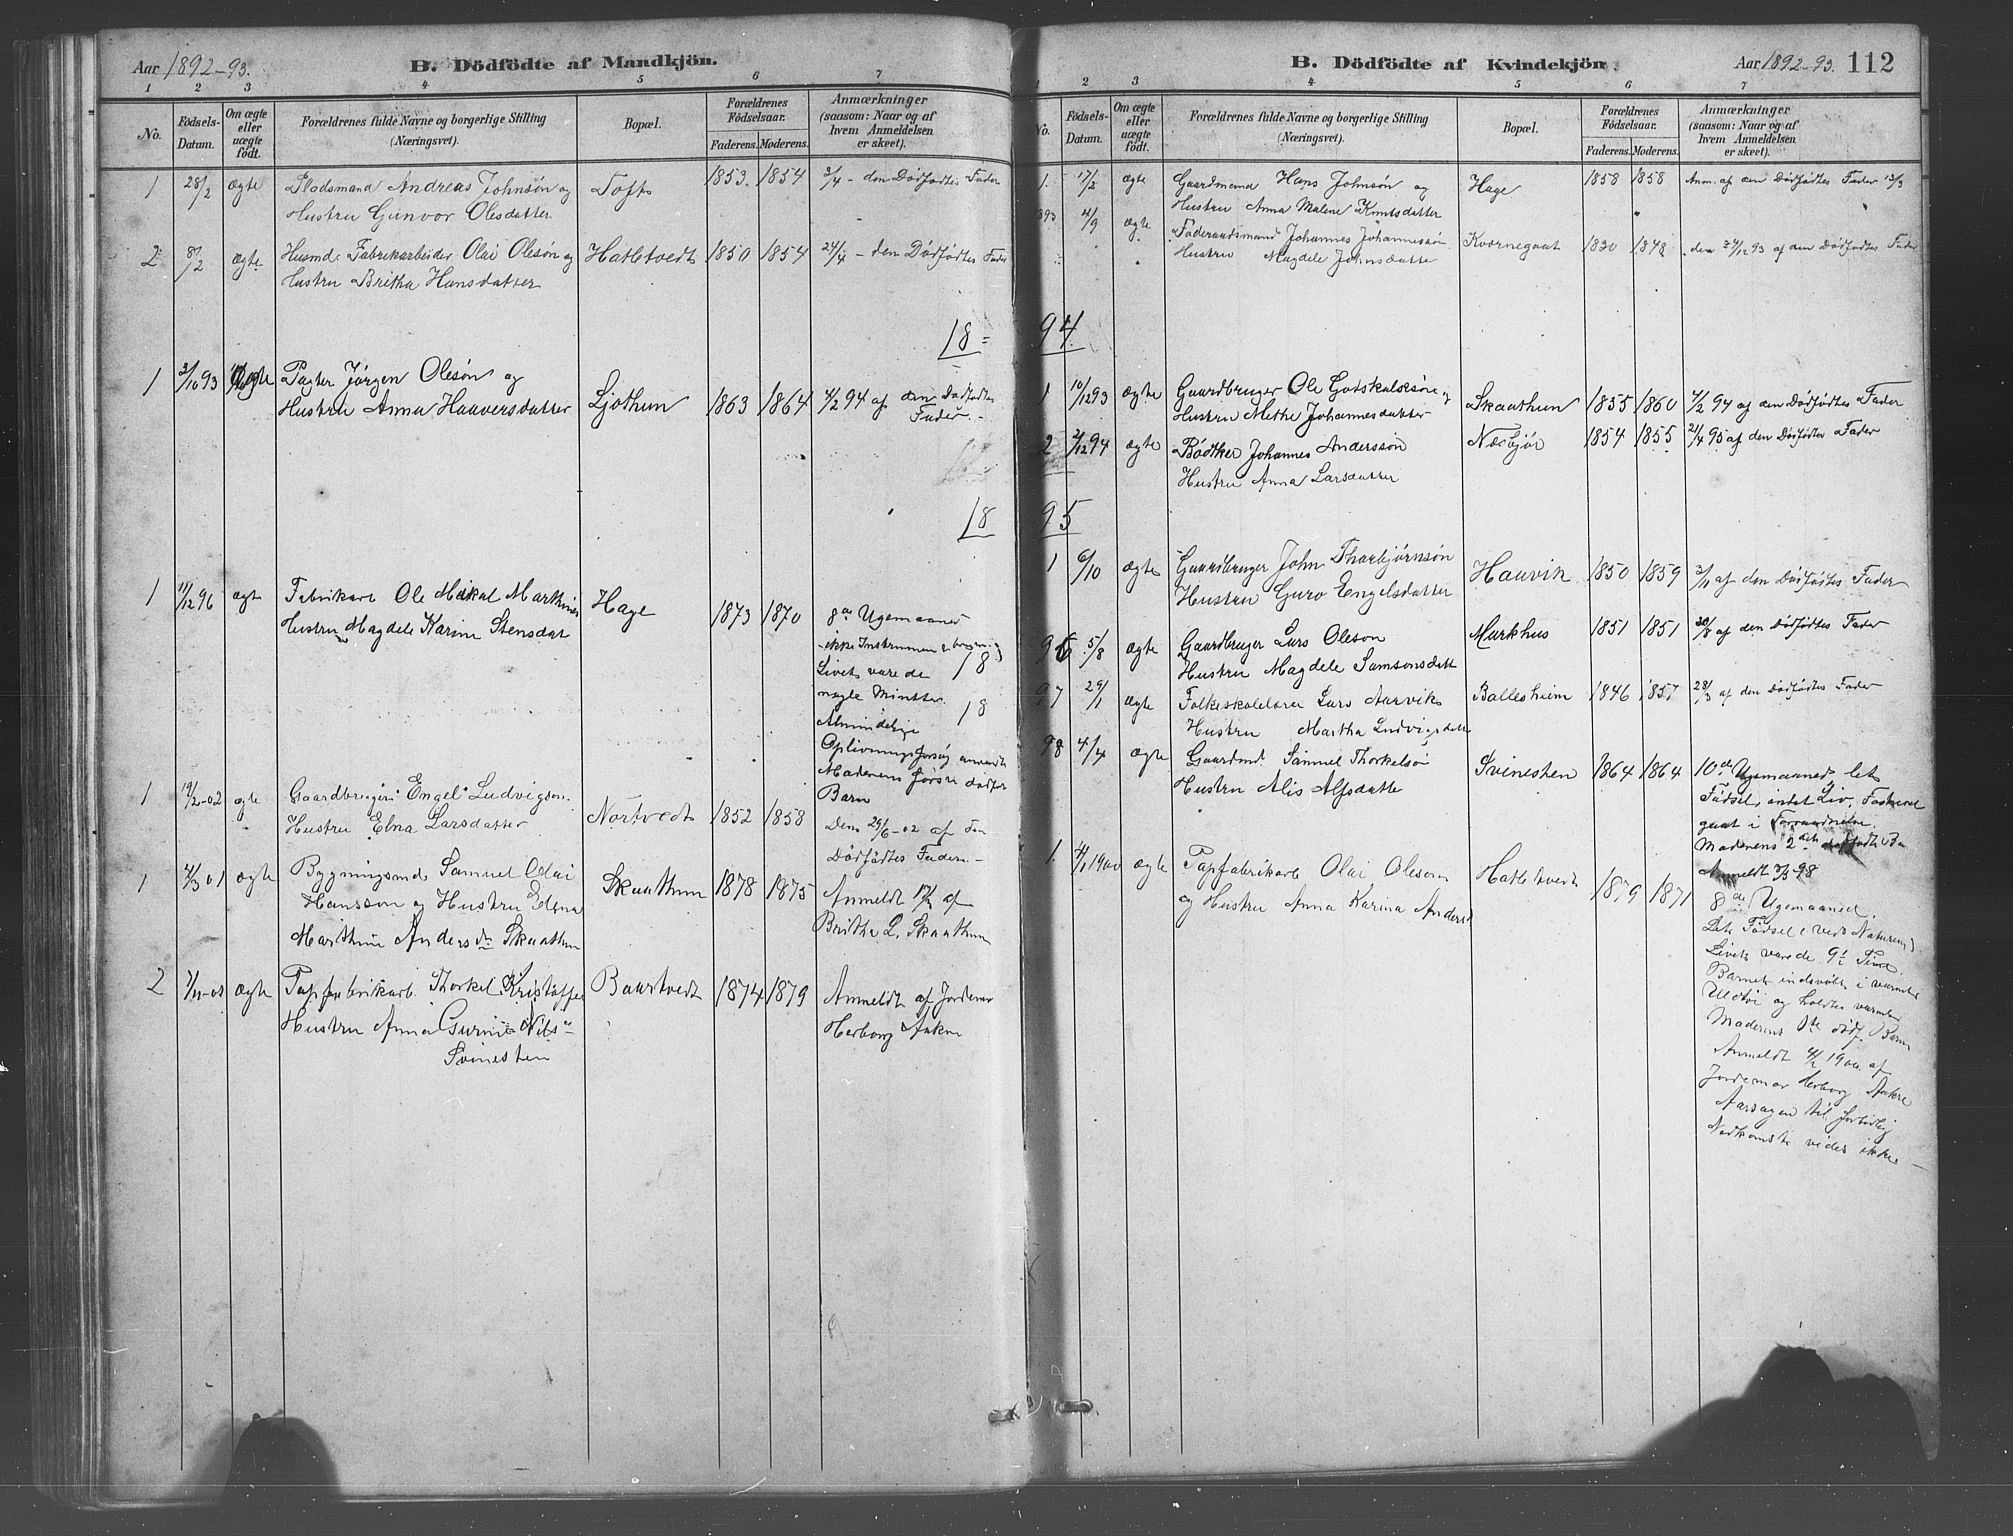 Aar 1892-93.
B. Dödfödte af Mandkjön.
1 2 3 4 5 6 7
No.
Födsels-Datum.
Om ægte eller uægte födt.
Forældrenes fulde Navne og borgerlige Stilling (Næringsvei).
Bopæl.
Forældrenes Födselsaar.
Faderens. Moderens.
Anmærkninger (saasom: Naar og af hvem Anmeldelsen er skeet).
1 28/2 ægte Pladsmand Andreas Johnsøn og Toft 1853. 1854 3/4 - den Dødfødtes Fader
Hustru Gunvor Olesdatter
2 ægte Husmd. Fabrikarbeider Olai Olesøn og Hatletvedt 1850 1854 24/4 - den Dødfødtes Fader
Hustru Britha Hansdatter
18
1 3/10 93 ægte Pagter Jørgen Olesøn og
Hustru Anna Haaversdatter Ljothun 1863 1864 4/2 94 af den Dødfødtes
Fader.-
18
1 11/12 96 ægte Fabrikarb Ole Mikal Marthines Hage 1873 1870 8de Ugemaaned
Hustru Magdele Karine Stensdat
ikke Instrumen
Livet var de 18
nogle Minutter
Almindelige 18
Oplivningsforsøg anvendt
Moderens første dødfø
Barn
1 19/2-02 ægte Gaardbruger Engel Ludvigsen Nortvedt 1852 1858
Hustru Elna Larsdatter
Den 29/6-02 af den
Dødfødtes Fader.-
1 4/3 01 ægte Bygningsmd Samuel Olai Skaathun 1878 1875 Anmeldt af
Hansson og Hustru Edena Britha L. Skaathun
Marthine Anders dr Skaathun
2 ægte Papfabrikarb. Thorkel Kristoffer Baartvedt 1874 1879 Anmeldt af Jordemor
Hustru Anna Gurine Nils Herborg Ankre
Svinesten
B. Dödfödte af Kvindekjön.
Aar 1892-93. 112
1 2 3 4 5 6 7
No.
Födsels-Datum.
Om ægte eller uægte födt.
Forældrenes fulde Navne og borgerlige Stilling (Næringsvei).
Bopæl.
Forældrenes Födselsaar.
Faderens. Moderens.
Anmærkninger (saasom: Naar og af hvem Anmeldelsen er skeet).
1. 17/2 ægte Gaardmand Hans Johnsøn og Hage 1858 1858 Anm. af den Dødfødtes Fader 13/3
Hustru Anna Malene Knutsdatter
1893 4/9 ægte Føderaadsmand Johannes Johannessøn Kværnegaat 1830 1848 den 27/12 93 af den Dødfødtes Fader
Hustru Magdele Johnsdatter
94
1 10/12 93 ægte Gaardbruger Ole Godskalksøn og Skaathun 1855 1860 4/2 94 af den Dødfødtes Fader
Hustru Methe Johannesdatter
2 2/12 94 ægte Bødtker Johannes Anderssøn Næsbjør 1854 1855 21/4 95 af den Dødfødtes Fader
Hustru Anna Larsdatter
95
1 6/10 ægte Gaardbruger John Thorbjørnsøn Hauvik 1850 1859 3/11 af den Dødfødtes Fader
Hustru Guro Engelsdatter
96 5/8 ægte Gaardbruger Lars Oleson Markhus 1851 1851 30/8 af den Dødfødtes Fader
Hustru Magdele Samsonsdatt
97 29/1 ægte Folkeskolelærer Lars Aarvik Ballesheim 1846 1857 28/3 af den Dødfødtes Fader
Hustru Martha Ludvigsdatt
98 4/4 ægte Gaardmd. Samuel Thorkelsøn Svinesten 1864 1864 10de Ugemaaned let
Hustru Alis Alfsdatter
Fødsel, intet Liv, Fosteret
gaat i Forraadnelse.
Moderens 2det dødfødte Ba
Anmeldt 98
1. 4/1 1900 ægte Papfabrikarb Olai Olesen Hatletvedt 1879 1871 8de Ugemaaned.
og Hustru Anna Karina Andersd
Let Fødsel (ved Naturen)
Livet varede 9½ Time
Barnet indsvøbt i varmt
Uldtøi og holdtes varmt
Moderens 1te dødf. Barn
Anmeldt 4/2 1900 af
Jordemor Herborg Ankre
Aarsagen til fortidlig
Nedkomst vides ikke